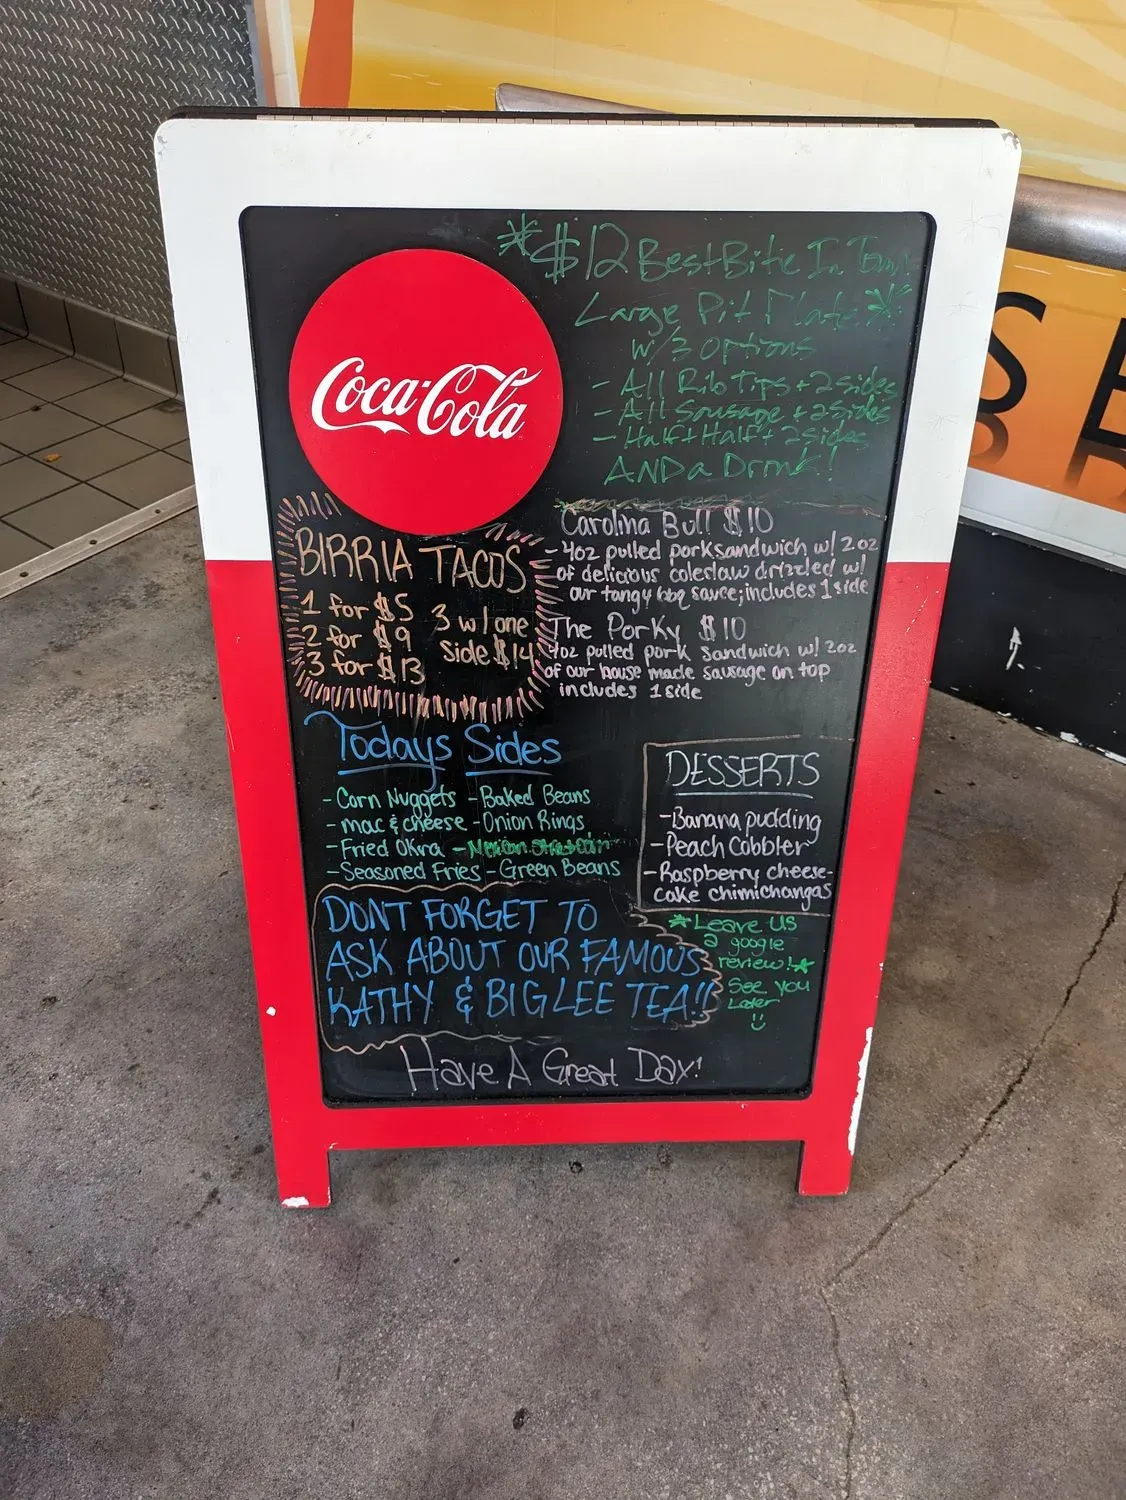 *$12 Best Bite In Town!
Large Pit Plate*
w/ 3 options
- All Rib Tips + 2 sides
- All Sausage + 2 sides
- Half + Half + 2 sides
AND a Drink!
Coca-Cola
BIRRIA TACOS
1 for $5
2 for $9
3 for $13
3 w/ one
side $14
Carolina Bull $10
- 4oz pulled pork sandwich w/ 2oz
of delicious coleslaw drizzled w/
our tangy bbq sauce; includes 1 side
The Porky $10
4oz pulled pork sandwich w/ 2oz
of our house made sausage on top
includes 1 side
Todays Sides
- Corn Nuggets - Baked Beans
- mac & cheese - Onion Rings
- Fried Okra
- Seasoned Fries - Green Beans
DESSERTS
- Banana pudding
- Peach Cobbler
- Raspberry cheese-
cake chimichangas
DONT FORGET TO
ASK ABOUT OUR FAMOUS
KATHY & BIG LEE TEA!!
*Leave us
a google
review!*
See you
Later
Have A Great Day!
SE